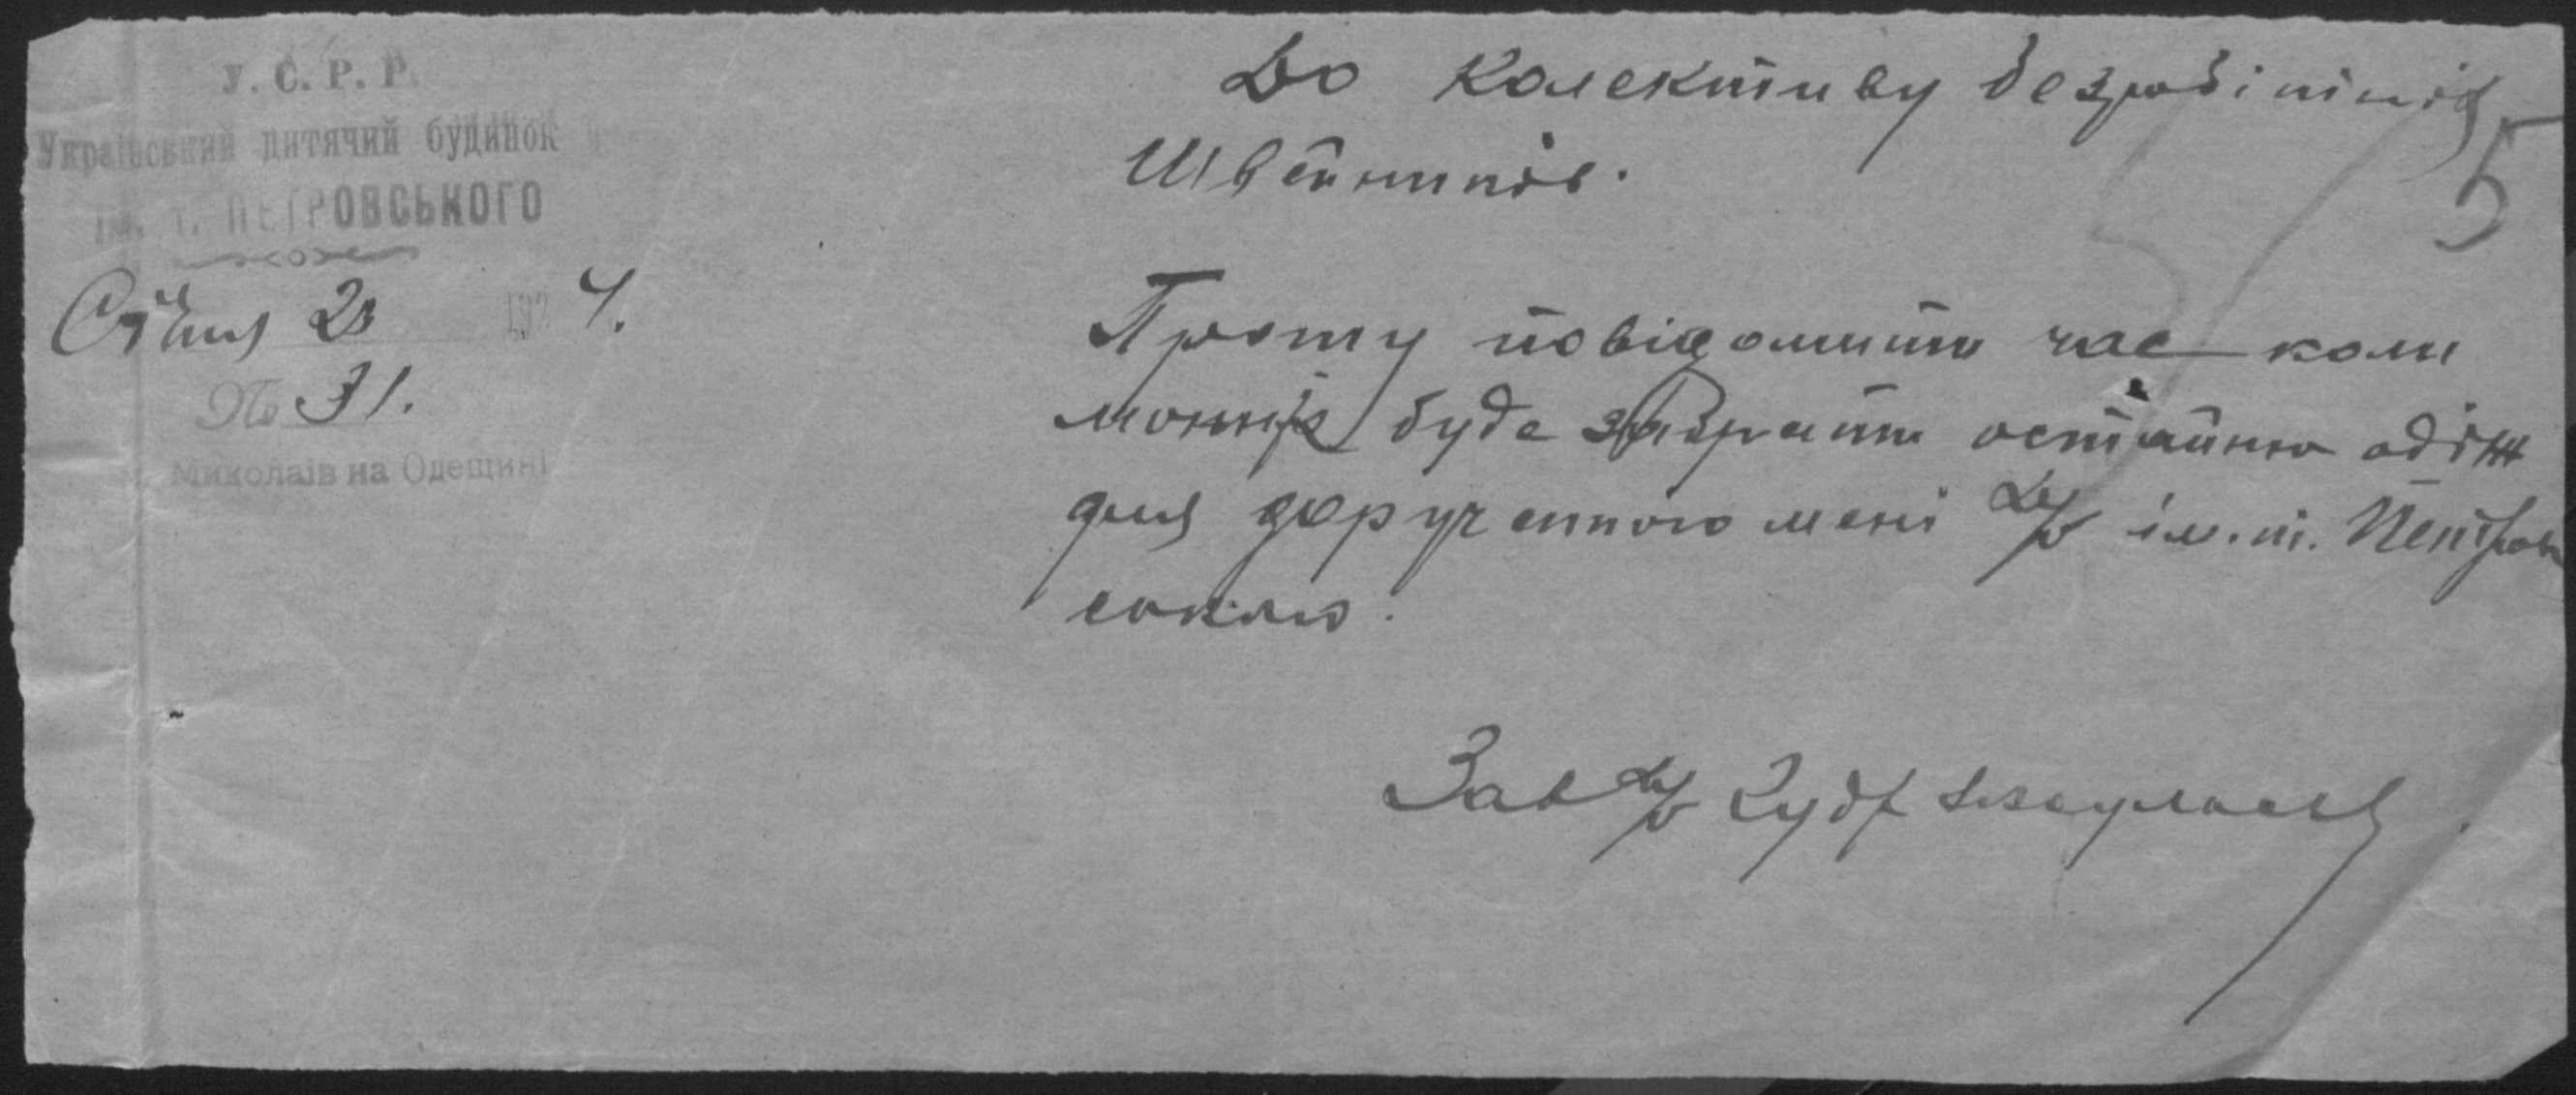 У. С. Р. Р.
Український дитячий будинок
ім. т. ПЕТРОВСЬКОГО
Січня 23 1924.
№ 31.
Миколаїв на Одещині
До колективу безробітніх
Швейників.
5
Прошу повідомити час коли
можна буде забрати остайню одіж
для дорученного мені д/б ім. т. Петров
ського.
Зав д/б